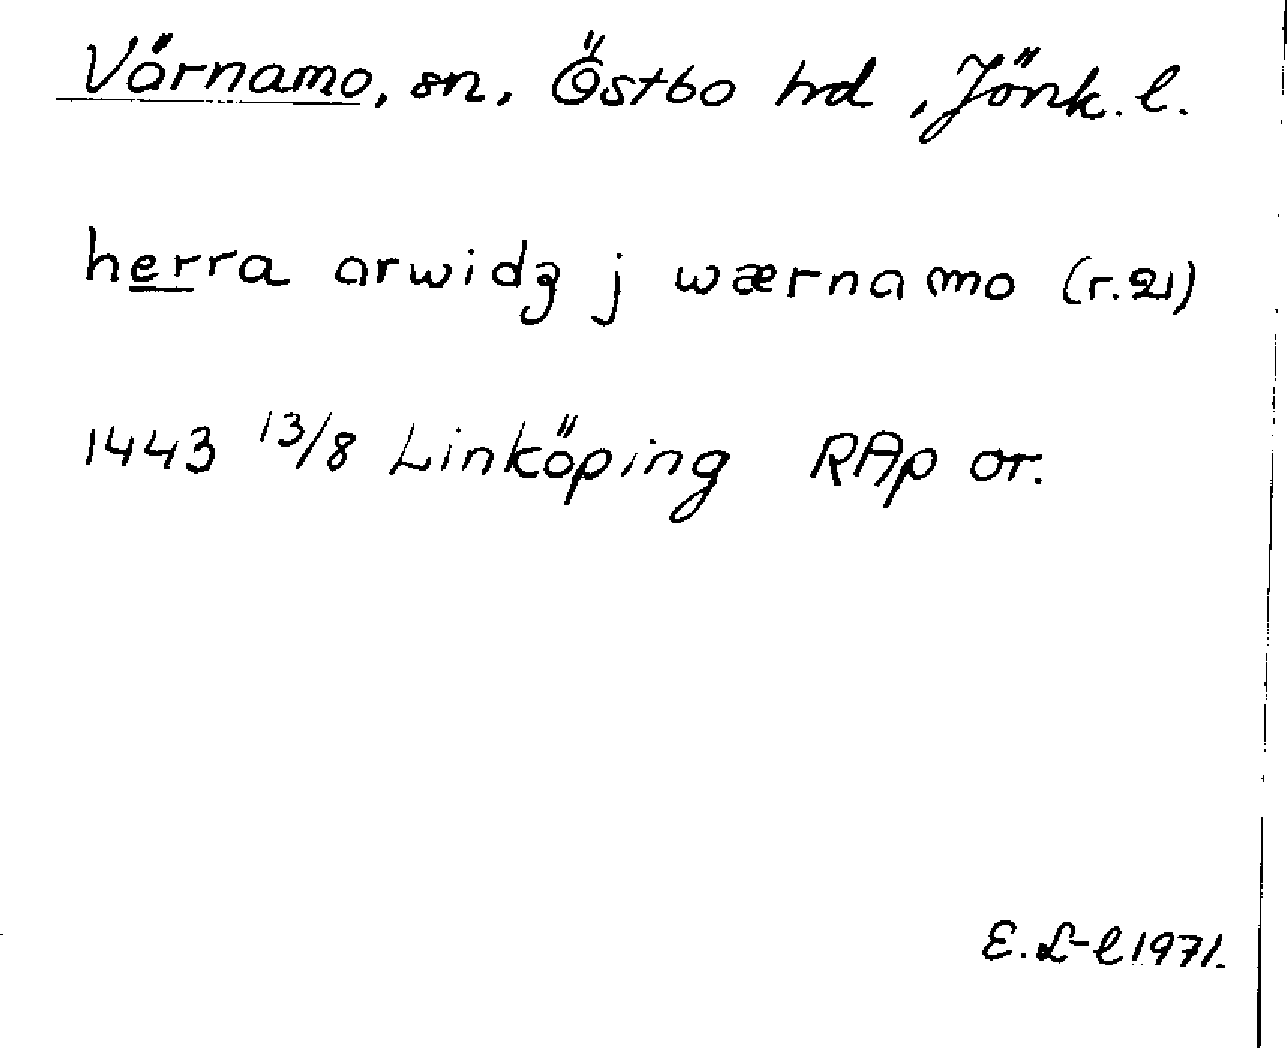 Värnamo, sn, Östbo hd, Jönk. l.
herra arwidʒ j wærnamo (r.21)
1443 13/8 Linköping RAp or.
E. L-l 1971.